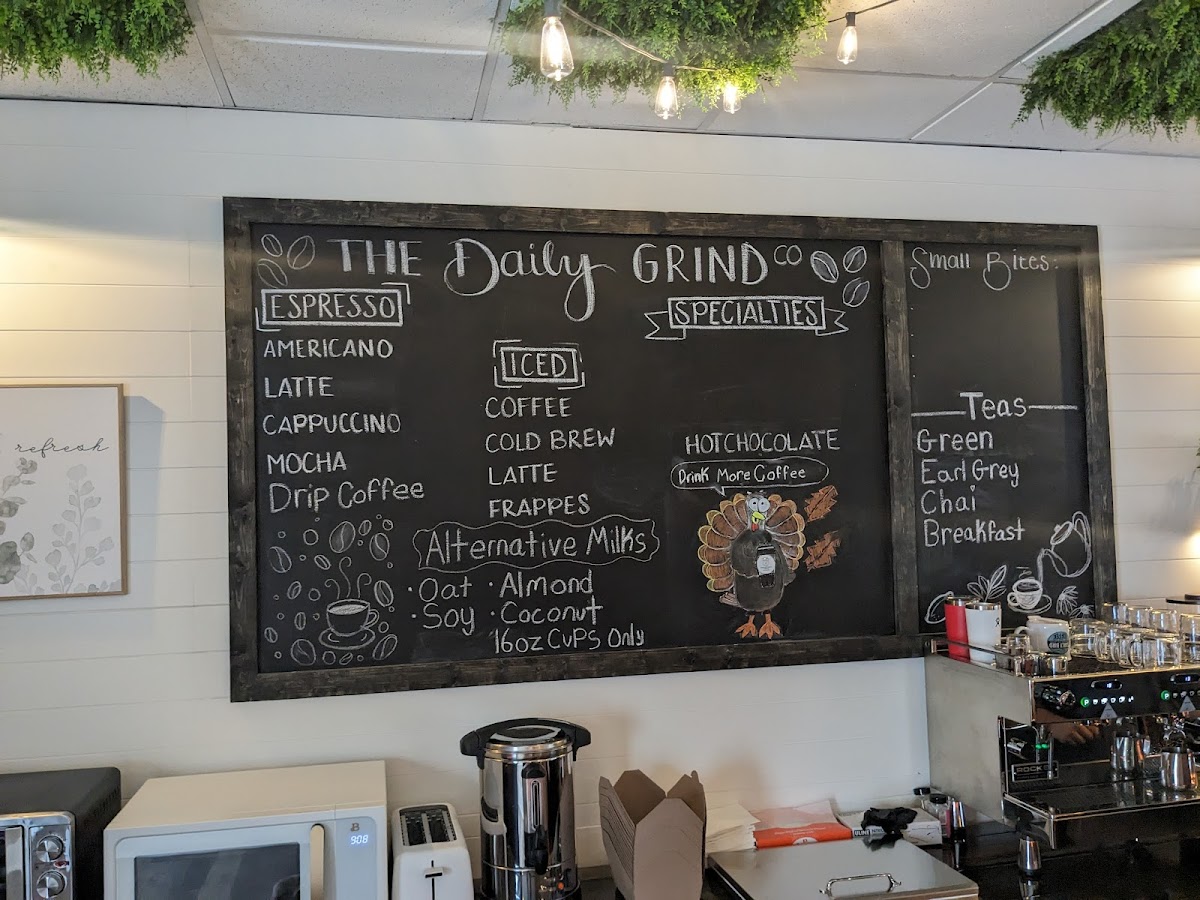 refresh
THE Daily GRIND CO
ESPRESSO
AMERICANO
LATTE
CAPPUCCINO
MOCHA
Drip Coffee
ICED
COFFEE
COLD BREW
LATTE
FRAPPES
Alternative Milks
· Oat · Almond
· Soy · Coconut
16oz CuPs Only
SPECIALTIES
HOT CHOCOLATE
Drink More Coffee
Small Bites:
Teas
Green
Earl Grey
Chai
Breakfast
908
ROCK